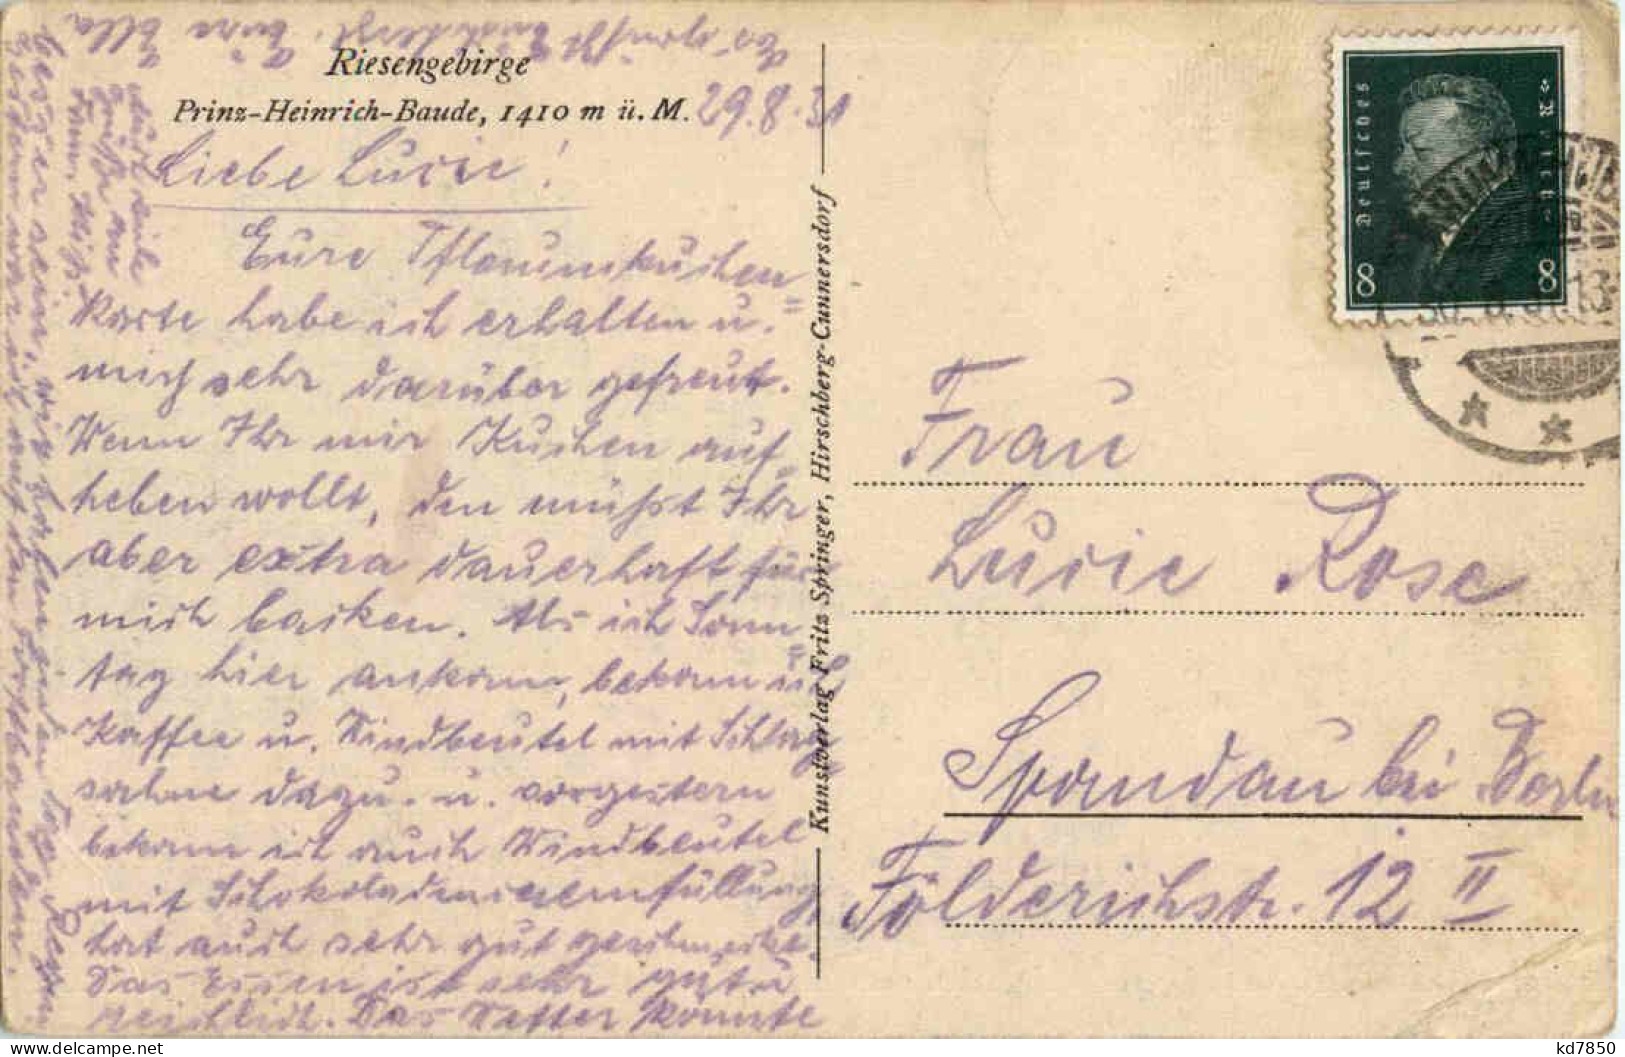 Riesengebirge
Prinz-Heinrich-Baude, 1410 m ü. M.
29.8.31
Liebe Lucie!
Eure Pflaumkuchen=
karte habe ich erhalten u.
mich sehr darüber gefreut.
Wenn Ihr mir Kuchen auf=
heben wollt, den müßt Ihr
aber extra dauerhaft für
mich backen. Als ich Sonn=
tag hier ankam, bekam ich
Kaffee u. Windbeutel mit Schlag
sahne dazu. u. vorgestern
bekam ich auch Windbeutel
mit Schokoladencremfüllung
hat auch sehr gut geschmeckt.
Das Essen ist sehr gut u
reichlich. Das Wetter könnte
besser sein, wir haben jeden Tag Regen
Gestern war ich auf den
Es grüßt Euch herzl. Eure Ella
Kunstverlag Fritz Springer, Hirschberg-Cunnersdorf
Deutsches Reich
8 8
Frau
Lucie Rose
Spandau bei Berlin
Földerichstr. 12 II
kd7850